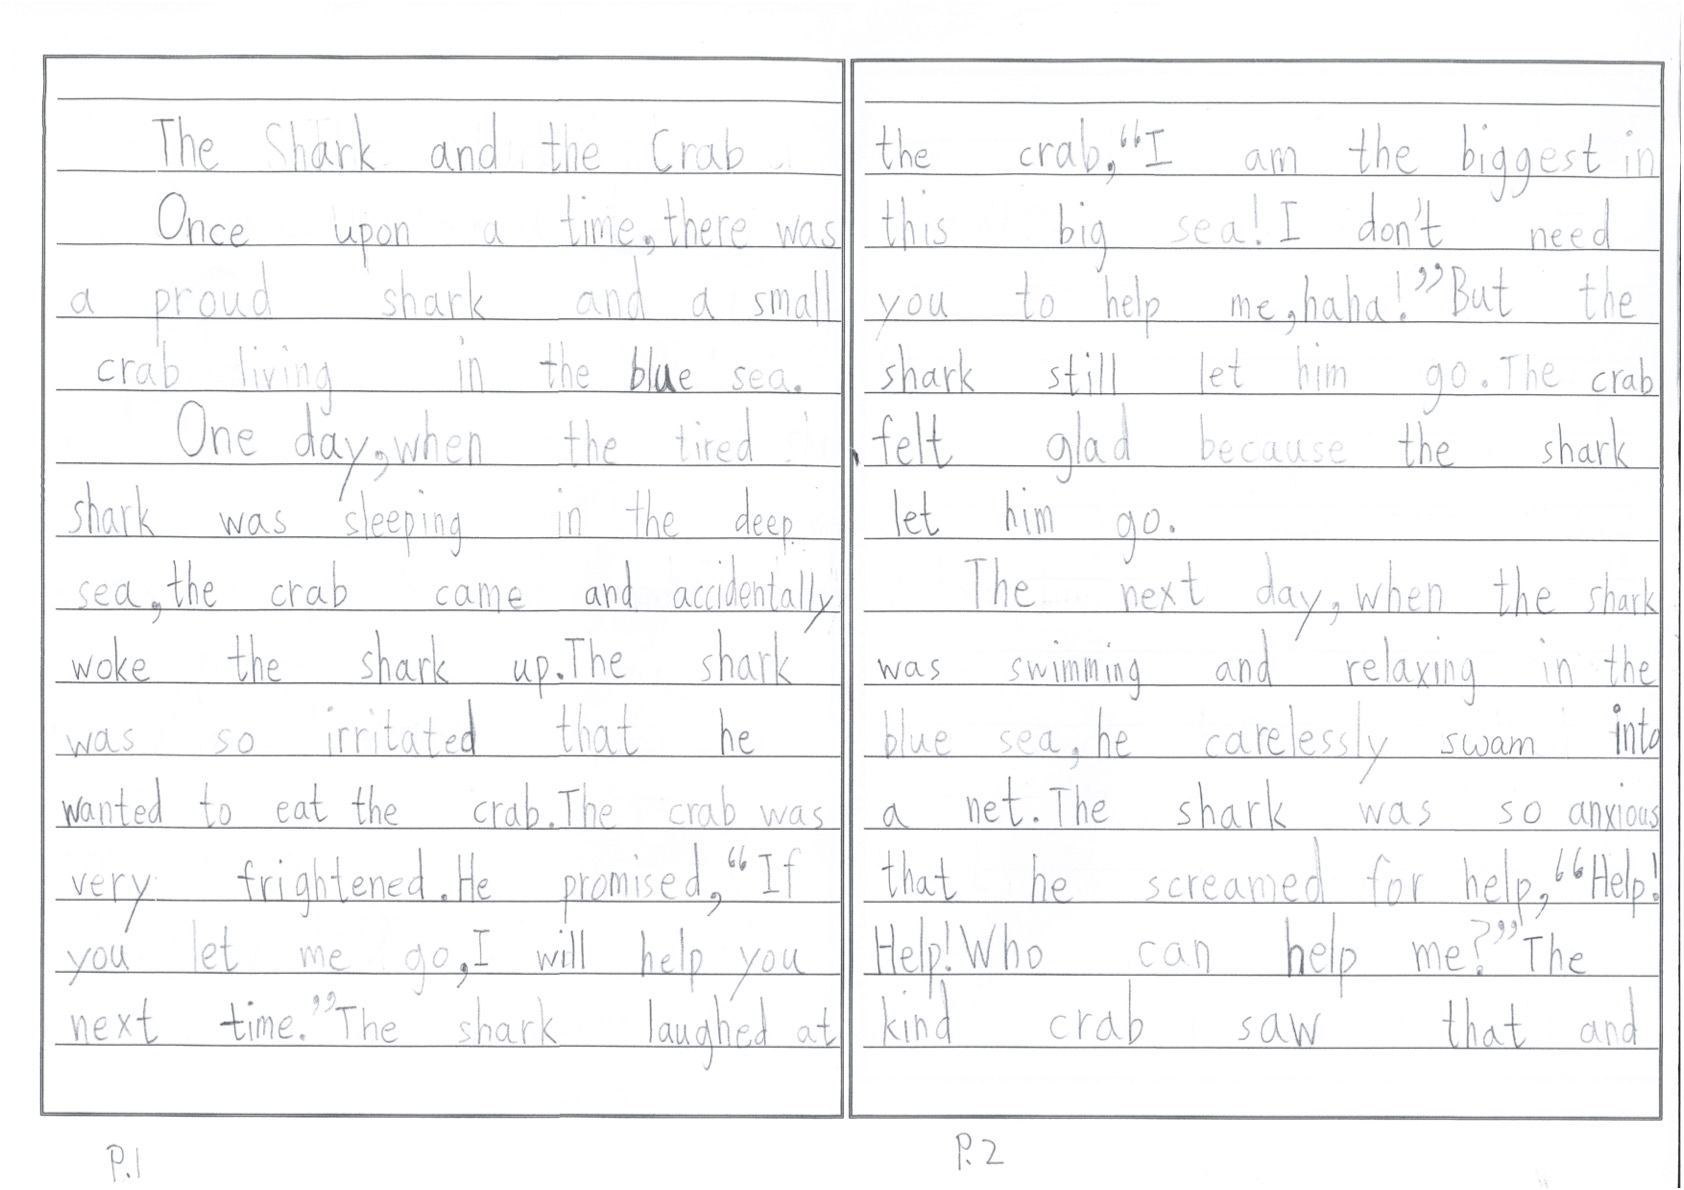 The Shark and the Crab
Once upon a time, there was
a proud shark and a small
crab living in the blue sea.
One day, when the tired
shark was sleeping in the deep
sea, the crab came and accidentally
woke the shark up. The shark
was so irritated that he
wanted to eat the crab. The crab was
very frightened. He promised, “If
you let me go, I will help you
next time.” The shark laughed at
P.1
the crab, “I am the biggest in
this big sea! I don't need
you to help me, haha!” But the
shark still let him go. The crab
felt glad because the shark
let him go.
The next day, when the shark
was swimming and relaxing in the
blue sea, he carelessly swam into
a net. The shark was so anxious
that he screamed for help, “Help!
Help! Who can help me?” The
kind crab saw that and
P.2